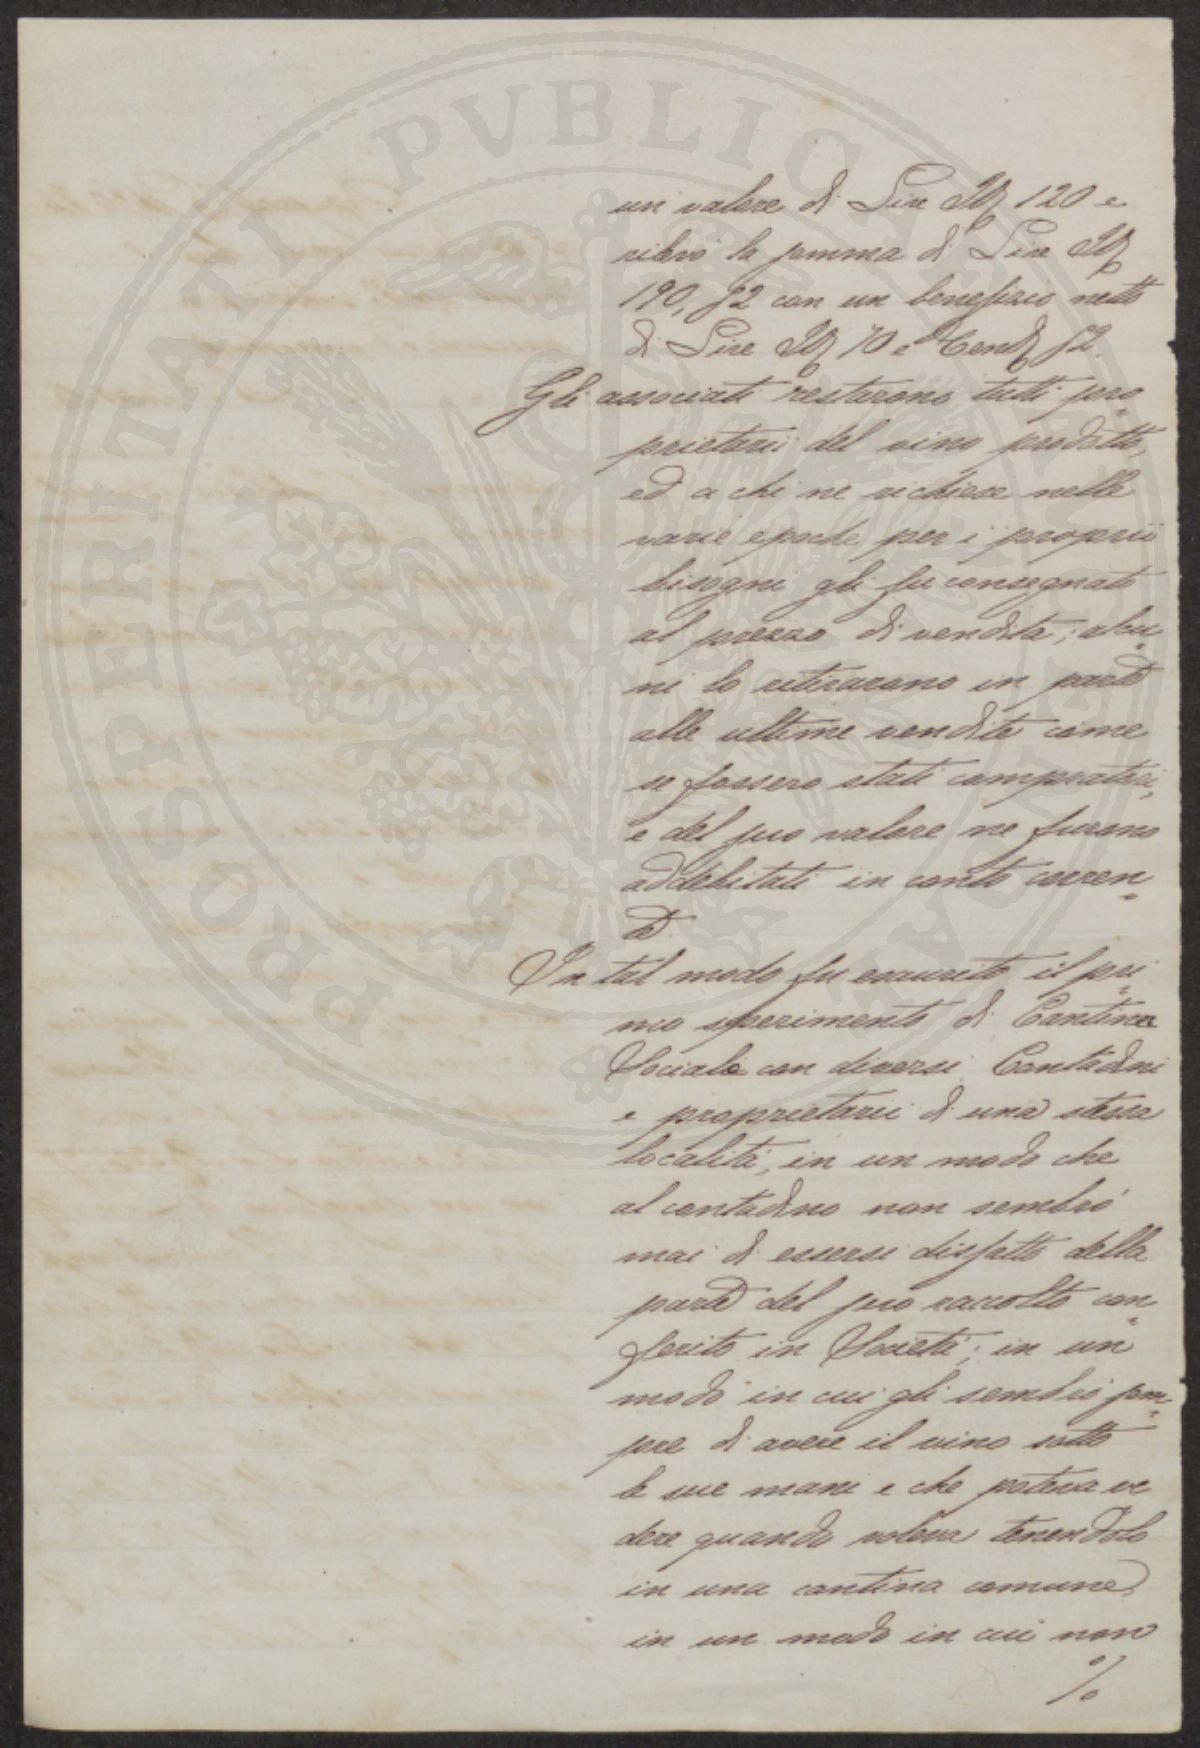 un valore di Lire It. 120 e
rilevò la somma di Lire It.
190,52 con un benefizio netto
di Lire It. 70 e Cent. 52.
Gli associati restarono tutti pro
prietarii del vino prodotto,
ed a chi ne richiese nelle
varie epoche per i proprii
bisogni gli fu consegnato
al prezzo di vendita; alcu-
ni lo ritirarono in parte
alle ultime vendite come
se fossero stati compratori,
e del suo valore ne furono
addebitati in conto corren-
te.
In tal modo fu esaurito il pri
mo sperimento di Cantina
Sociale con diversi Contadini
e proprietarii di una stessa
località, in un modo che
al contadino non sembrò
mai di essersi disfatto della
parte del suo raccolto con
ferito in Società; in un
modo in cui gli sembrò sem
pre di avere il vino sotto
le sue mani e che poteva ve
dere quando voleva tenendolo
in una cantina comune,
in un modo in cui non
%
PROSPERITATI PVBLICAE